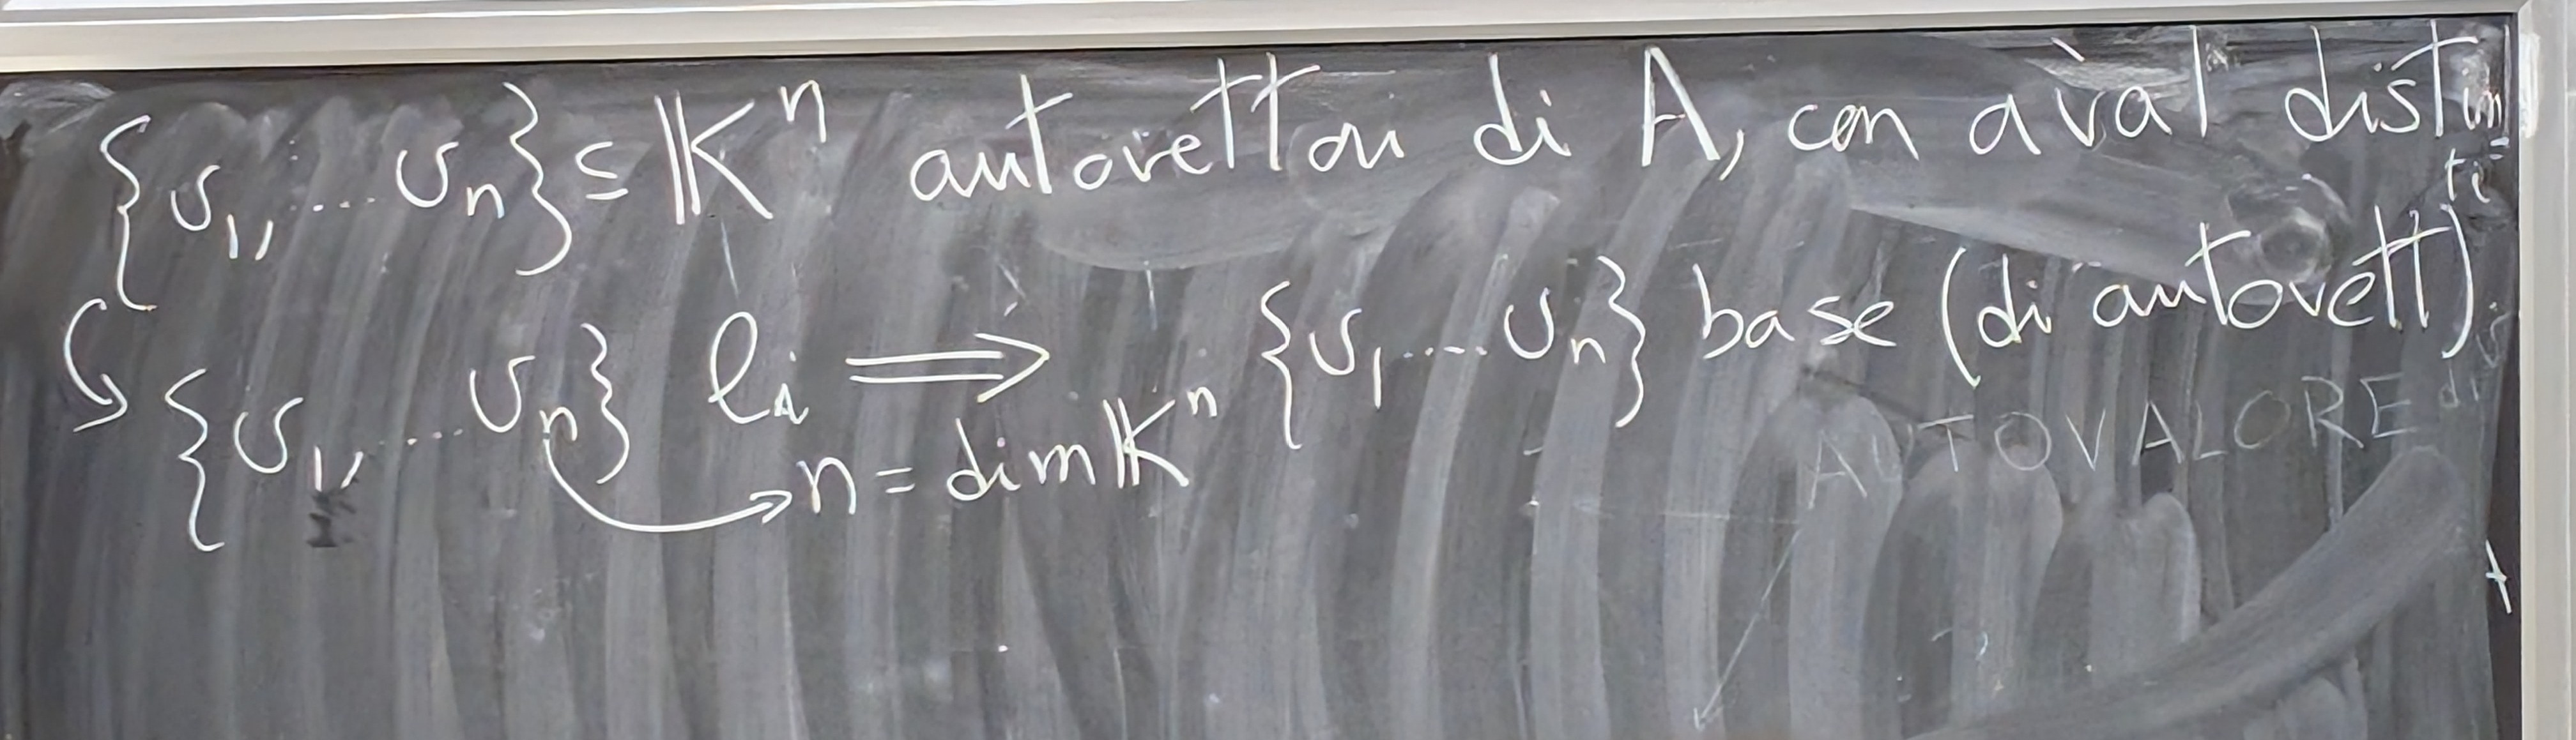 {v₁, .... vₙ} ⊆ 𝕂ⁿ autovettori di A, con aval distin=
ti
{v₁, .... vₙ} li ⟹ {v₁ .... vₙ} base (di autovett).
n = dim 𝕂ⁿ
AUTOVALORE